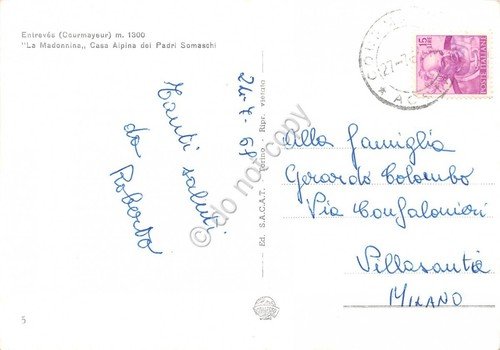 Entrevès (Courmayeur) m. 1300
"La Madonnina,, Casa Alpina dei Padri Somaschi
24-7-67
Tanti saluti
da
Roberto
Ed. S.A.C.A.T. - Torino - Ripr. vietata
do not copy
15
LIRE
POSTE ITALIANE
27-7
Alla famiglia
Gerardo Colombo
Via Confalonieri
Villasanta
MILANO
5